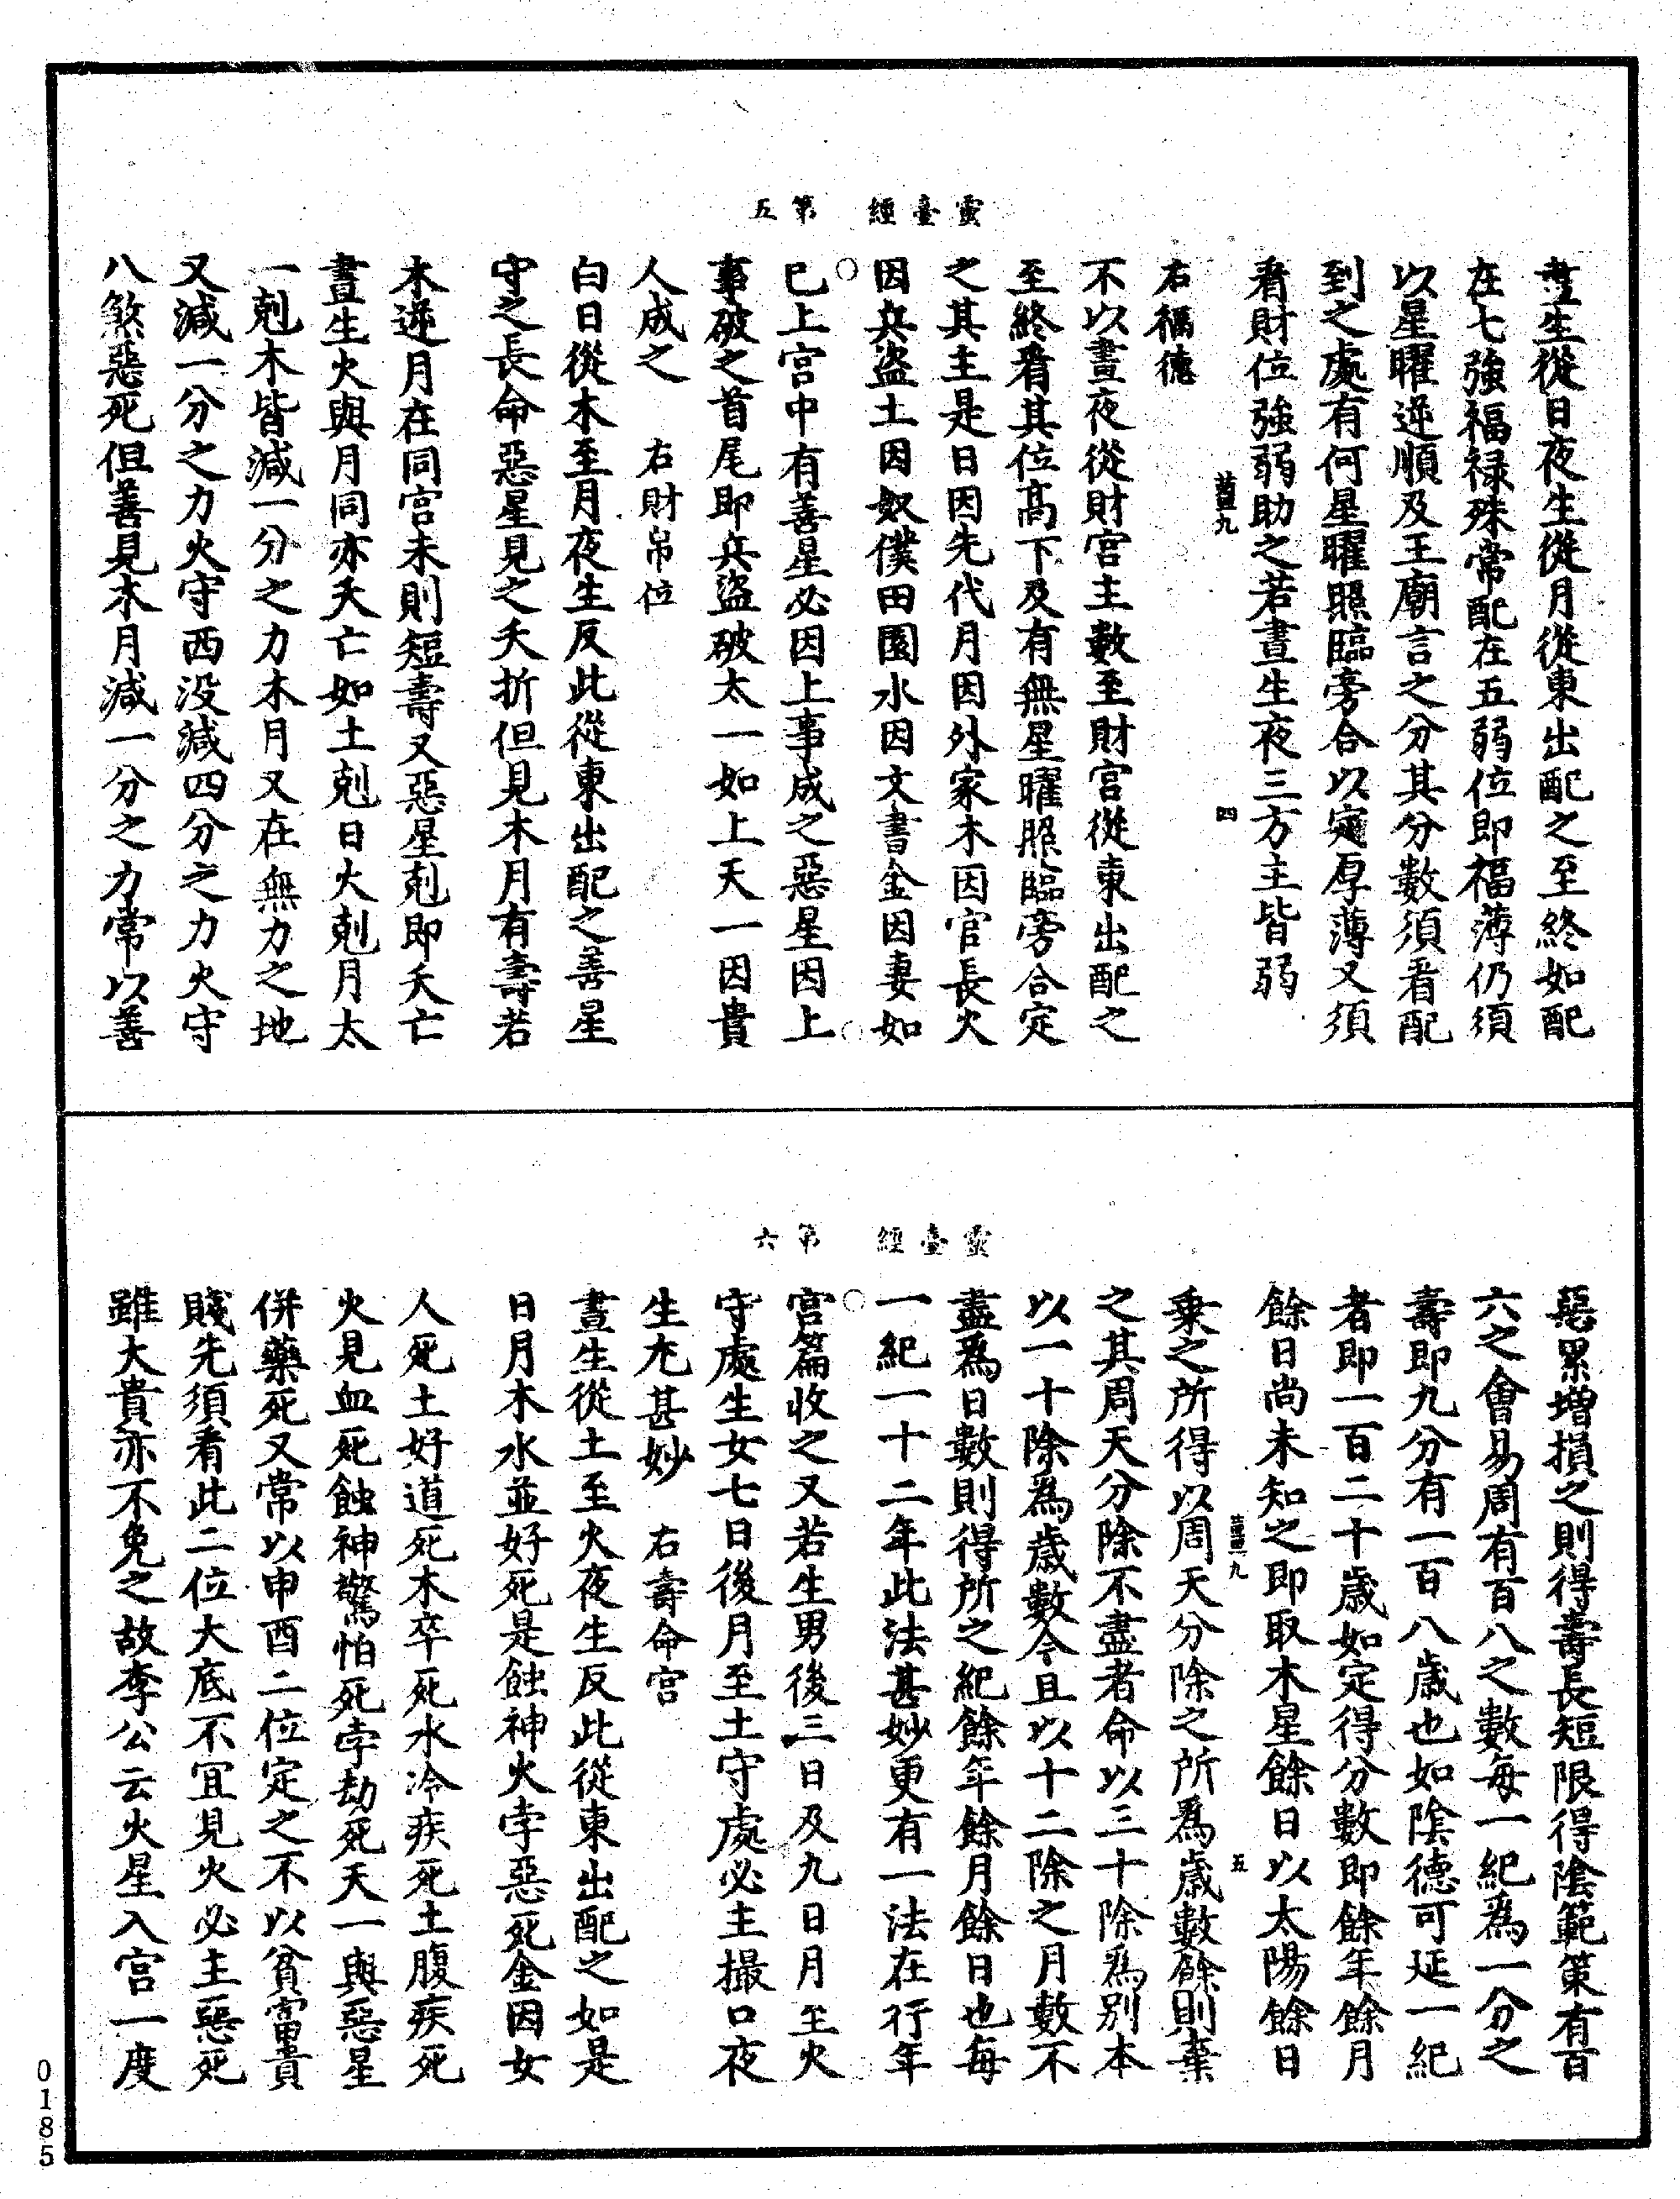 靈臺經　第五
晝生從日夜生從月從東出配之至終如配
在七強福禄殊常配在五弱位即福薄仍須
以星曜逆順及王廟言之分其分數須看配
到之處有何星曜照臨旁合以定厚薄又須
看財位強弱助之若晝生夜三方主皆弱
九　四
右福德
不以晝夜從財宮主數至財宮從東出配之
至終看其位高下及有無星曜照臨旁合定
之其主是日因先代月因外家木因官長火
因兵盜土因奴僕田園水因文書金因妻如
巳上宮中有善星必因上事成之惡星因上
事破之首尾即兵盜破太一如上天一因貴
人成之　右財帛位
白日從木至月夜生反此從東出配之善星
守之長命惡星見之夭折但見木月有壽若
木逆月在同宮未則短壽又惡星剋即夭亡
晝生火與月同亦夭亡如土剋日火剋月太
一剋木皆減一分之力木月又在無力之地
又減一分之力火守西没減四分之力火守
八煞惡死但善見木月減一分之力常以善
靈臺經　第六
惡累增損之則得壽長短限得陰範策有百
六之會易周有百八之數每一紀為一分之
壽即九分有一百八歲也如陰德可延一紀
者即一百二十歲如定得分數即餘年餘月
餘日尚未知之即取木星餘日以太陽餘日
九　五
乗之所得以周天分除之所爲歲數餘則棄
之其周天分除不盡者命以三十除爲別本
以一十除爲歲數今且以十二除之月數不
盡爲日數則得所之紀餘年餘月餘日也每
一紀一十二年此法甚妙更有一法在行年
宮篇收之又若生男後三日及九日月至火
守處生女七日後月至土守處必主撮口夜
生尤甚妙　右壽命宮
晝生從土至火夜生反此從東出配之如是
日月木水並好死是蝕神火孛惡死金因女
人死土好道死木卒死水冷疾死土腹疾死
火見血死蝕神驚怕死孛劫死天一與惡星
併藥死又常以申酉二位定之不以貧富貴
賤先須看此二位大底不宜見火必主惡死
雖大貴亦不免之故李公云火星入宮一度
0185